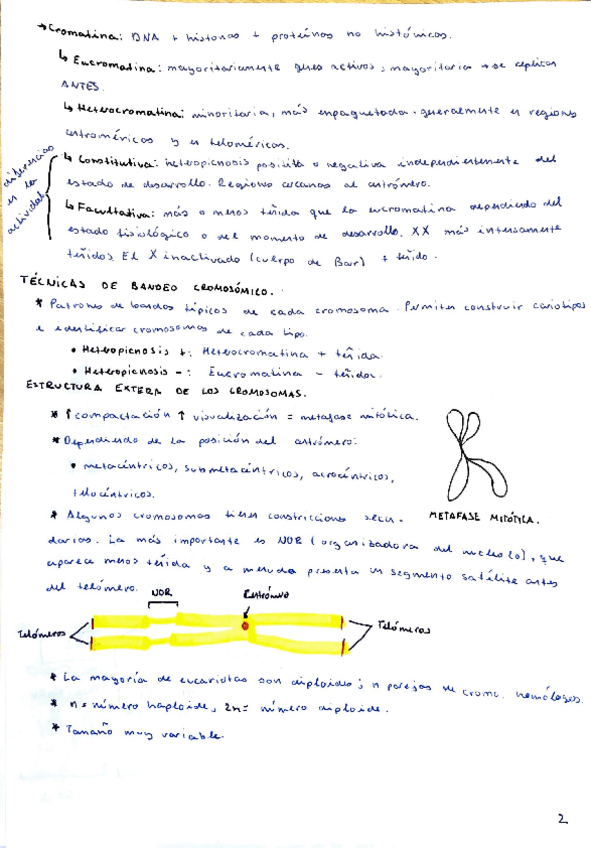 →Cromatina: DNA + histonas + proteínas no histónicas.
↳ Eucromatina: mayoritariamente genes activos, mayoritaria → se replican
ANTES.
↳ Heterocromatina: minoritaria, más empaquetada. generalmente en regiones
centroméricas y en teloméricas.
diferencias
en la
actividad
↳ Constitutiva: heteropicnosis positiva o negativa independientemente del
estado de desarrollo. Regiones cercanas al centrómero.
↳ Facultativa: más o menos teñida que la eucromatina dependiendo del
estado fisiológico o del momento de desarrollo. XX más intensamente
teñidos El X inactivado (cuerpo de Bar) + teñido.
TÉCNICAS DE BANDEO CROMOSÓMICO.
* Patrones de bandas típicos de cada cromosoma. Permiten construir cariotipos
e identificar cromosomas de cada tipo.
• Heteropicnosis +: Heterocromatina + teñida.
• Heteropicnosis -: Eucromatina - teñida.
ESTRUCTURA EXTERA DE LOS CROMOSOMAS.
* ↑ compactación ↑ visualización = metafase mitótica.
* Dependiendo de la posición del centrómero:
• metacéntricos, submetacéntricos, acrocéntricos,
telocéntricos.
METAFASE MITÓTICA.
* Algunos cromosomas tienen constricciones secun-
darias. La más importante es NOR (organizadora del nucleolo), que
aparece menos teñida y a menudo presenta un segmento satélite antes
del telómero.
NOR
Centrómero
Telómeros
Telómeros
* La mayoría de eucariotas son diploides; n parejas de cromo. homólogos.
* n = número haploide, 2n = número diploide.
* Tamaño muy variable.
2